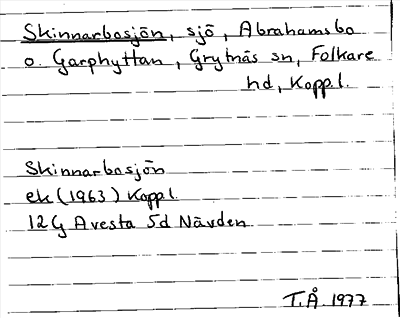 Skinnarbosjön, sjö, Abrahamsbo
o. Garphyttan, Grytnäs sn, Folkare
hd, Koppl.
Skinnarbosjön
ek (1963) Koppl.
12G Avesta 5d Nävden
T.Å. 1977